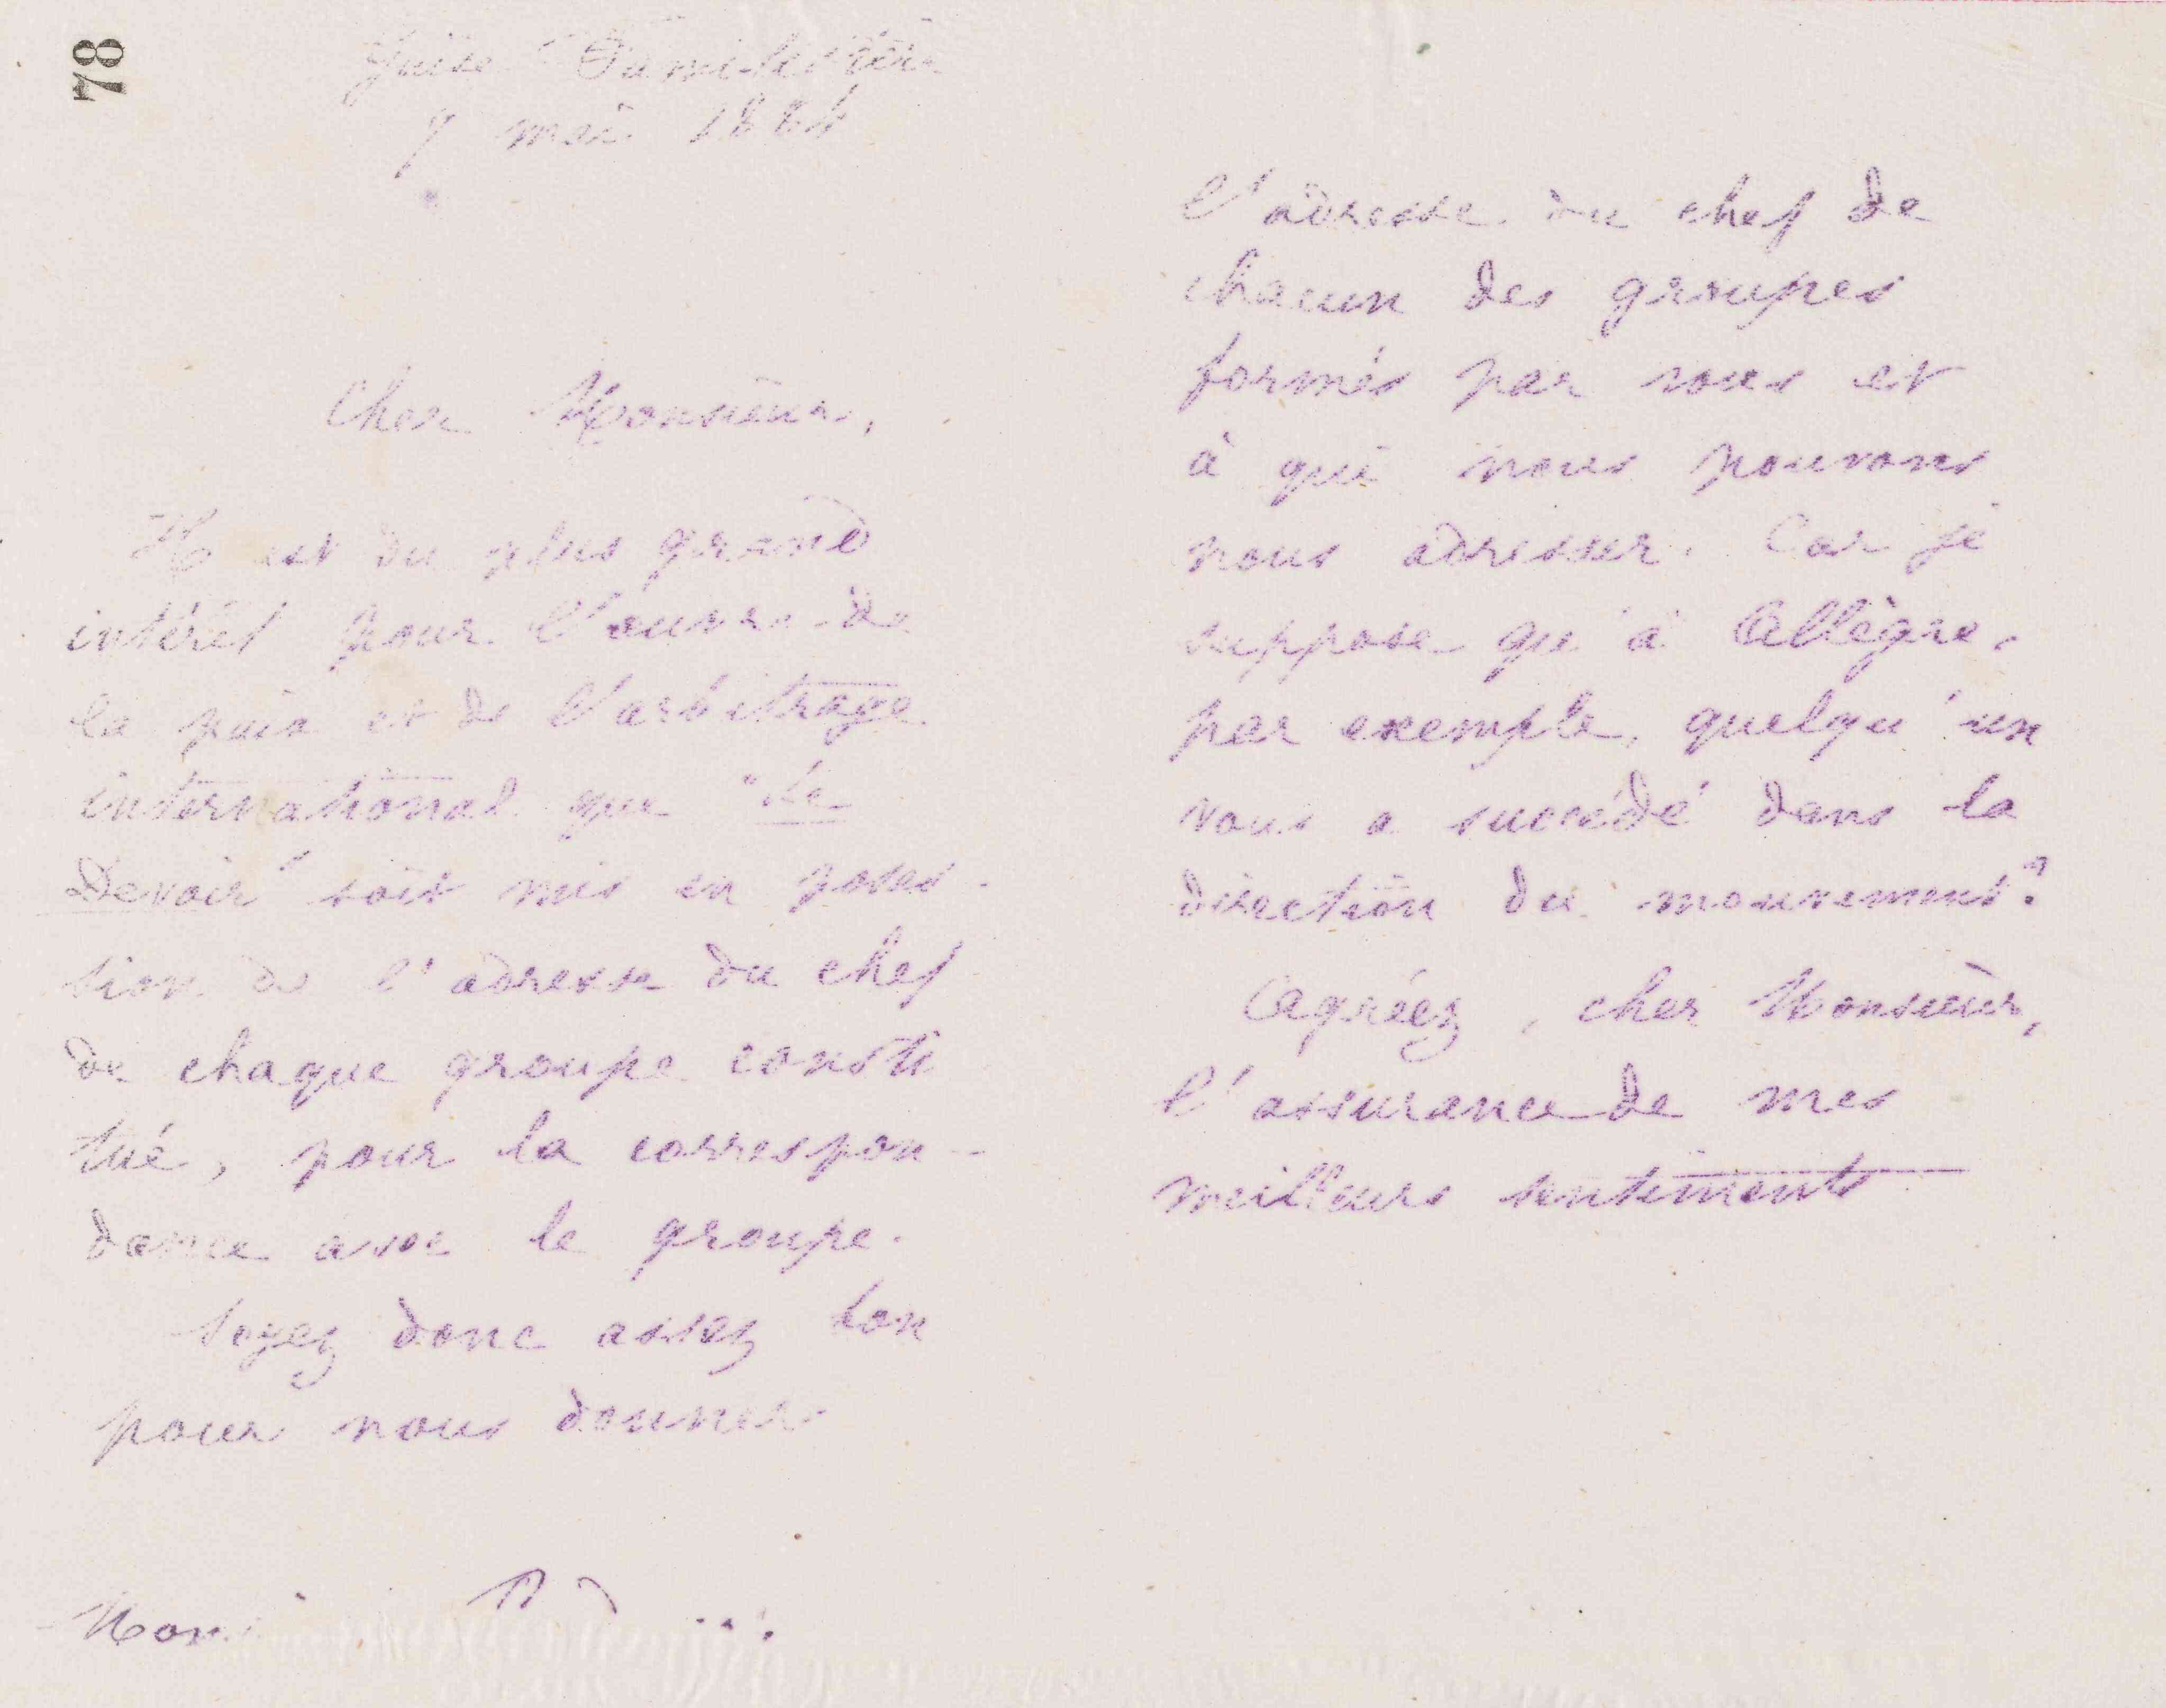 78
Guise Familistère
7 mai 1884
Cher Monsieur,
Il est du plus grand
intérêt pour l'œuvre de
la paix et de l'arbitrage
international que "Le
Devoir" soit mis en posses-
sion de l'adresse du chef
de chaque groupe consti
tué, pour la correspon-
dance avec le groupe.
Soyez donc assez bon
pour nous donner
l'adresse du chef de
chacun des groupes
formés par vous et
à qui nous pouvons
nous adresser. Car je
suppose qu'à Allègre,
par exemple, quelqu'un
vous a succédé dans la
direction du mouvement?
Agréez, cher Monsieur,
l'assurance de mes
meilleurs sentiments